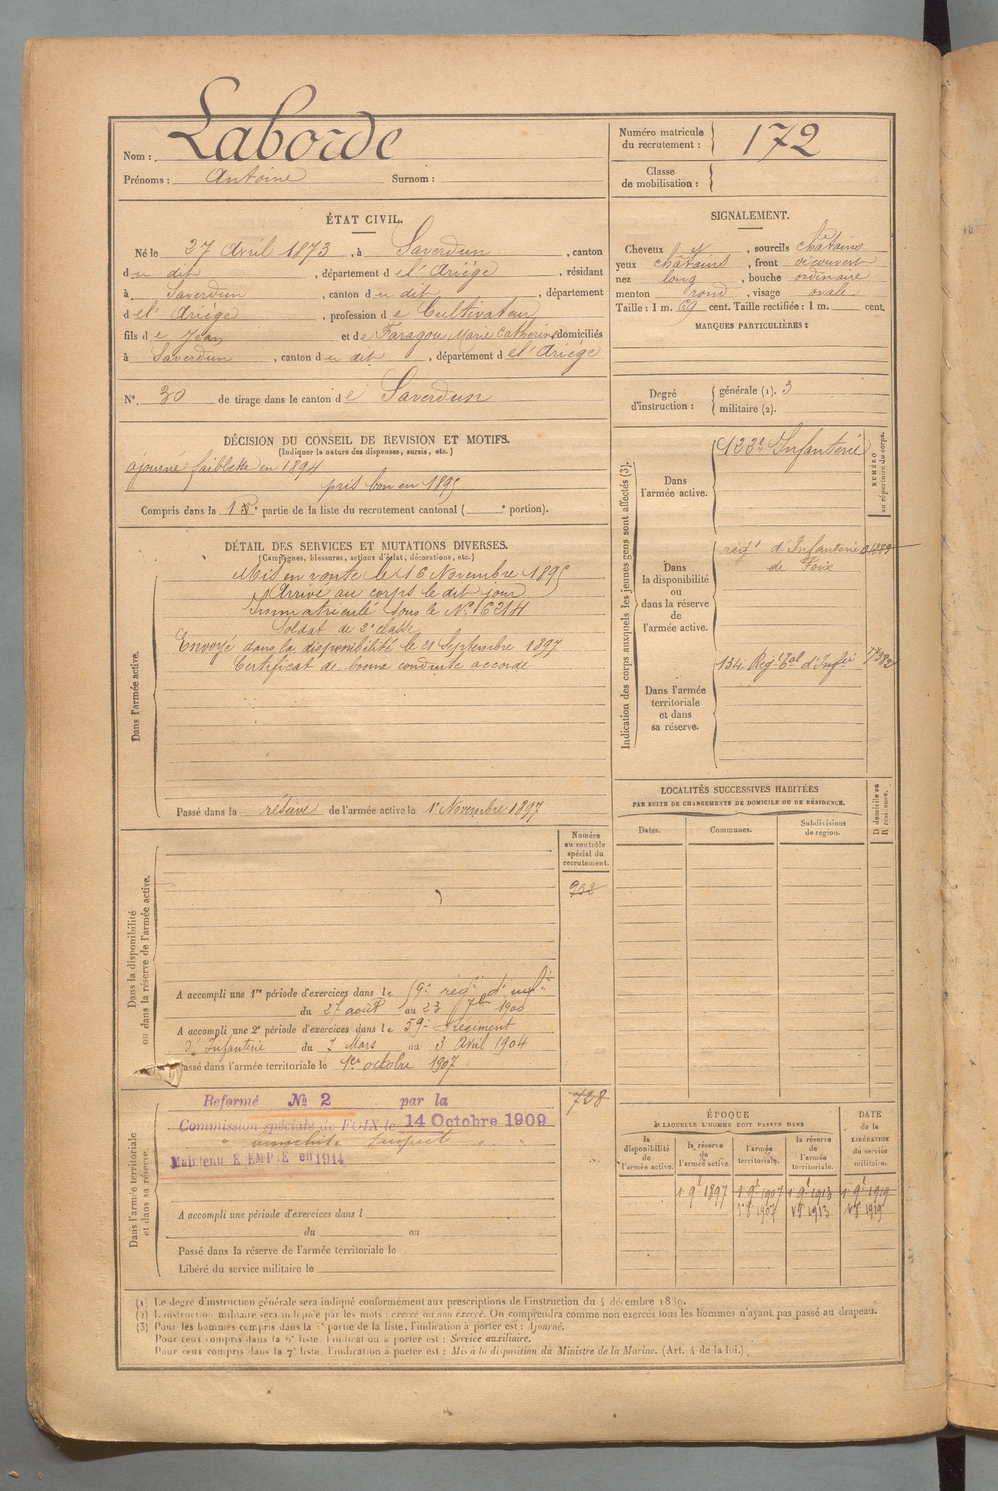 Nom : Laborde
Prénoms : Antoine Surnom :
Numéro matricule du recrutement : 172
Classe de mobilisation :
ÉTAT CIVIL.
Né le 27 Avril 1873, à Saverdun, canton
du dit, département de l'Ariége, résidant
à Saverdun, canton du dit, département
de l'Ariége, profession de Cultivateur
fils de Jean et de Faragou Marie Catherine domiciliés
à Saverdun, canton du dit, département de l'Ariége
N° 30 de tirage dans le canton de Saverdun
SIGNALEMENT.
Cheveux et, sourcils châtains
yeux châtains, front découvert
nez long, bouche ordinaire
menton rond, visage ovale
Taille : 1 m. 69 cent. Taille rectifiée : 1 m. cent.
MARQUES PARTICULIÈRES :
Degré d'instruction : générale (1). 3
militaire (2).
DÉCISION DU CONSEIL DE REVISION ET MOTIFS.
(Indiquer la nature des dispenses, sursis, etc.)
ajourné faiblesse en 1894
pris bon en 1895
Compris dans la 1re partie de la liste du recrutement cantonal ( e portion).
DÉTAIL DES SERVICES ET MUTATIONS DIVERSES.
(Campagnes, blessures, actions d'éclat, décorations, etc.)
Dans l'armée active.
Mis en route le 16 Novembre 1895
Arrivé au corps le dit jour
Immatriculé sous le N° 6214
Soldat de 2e classe
Envoyé dans la disponibilité le 21 Septembre 1897
Certificat de bonne conduite accordé
Passé dans la réserve de l'armée active le 1er Novembre 1897
Indication des corps auxquels les jeunes gens sont affectés (3).
NUMÉRO au répertoire du corps.
Dans l'armée active.
122e Infanterie
Dans la disponibilité ou dans la réserve de l'armée active.
régt d'Infanterie
de Foix
Dans l'armée territoriale et dans sa réserve.
134 Régt Tal d'Infie
LOCALITÉS SUCCESSIVES HABITÉES
PAR SUITE DE CHANGEMENTS DE DOMICILE OU DE RÉSIDENCE.
Dates. Communes. Subdivisions de région. D domicile ou R résidence.
Numéro au contrôle spécial du recrutement.
932
Dans la disponibilité ou dans la réserve de l'armée active.
A accompli une 1re période d'exercices dans le 59e régt d'infie
du 27 août au 23 7bre 1900
A accompli une 2e période d'exercices dans le 59e Régiment
d'Infanterie du 7 Mars au 3 Avril 1904
Passé dans l'armée territoriale le 1er octobre 1907
738
Dans l'armée territoriale et dans sa réserve.
Reformé No 2 par la
Commission spéciale de FOIX le 14 Octobre 1909
Maintenu E EMP.E en 1914
A accompli une période d'exercices dans l
du au
Passé dans la réserve de l'armée territoriale le
Libéré du service militaire le
ÉPOQUE
À LAQUELLE L'HOMME DOIT PASSER DANS
la disponibilité de l'armée active. la réserve de l'armée active. l'armée territoriale. la réserve de l'armée territoriale.
DATE de la LIBÉRATION du service militaire.
1 9e 1897 1 9e 1907 1 9e 1913 1 9e 1919
1 8e 1907 1 8e 1913 1 8e 1919
(1) Le degré d'instruction générale sera indiqué conformément aux prescriptions de l'instruction du 4 décembre 1889.
(2) L'instruction militaire sera indiquée par les mots : exercé ou non exercé. On comprendra comme non exercés tous les hommes n'ayant pas passé au drapeau.
(3) Pour les hommes compris dans la partie de la liste, l'indication à porter est : Ajourné.
Pour ceux compris dans la liste, l'indication à porter est : Service auxiliaire.
Pour ceux compris dans la 7e liste, l'indication à porter est : Mis à la disposition du Ministre de la Marine. (Art. 4 de la loi.)